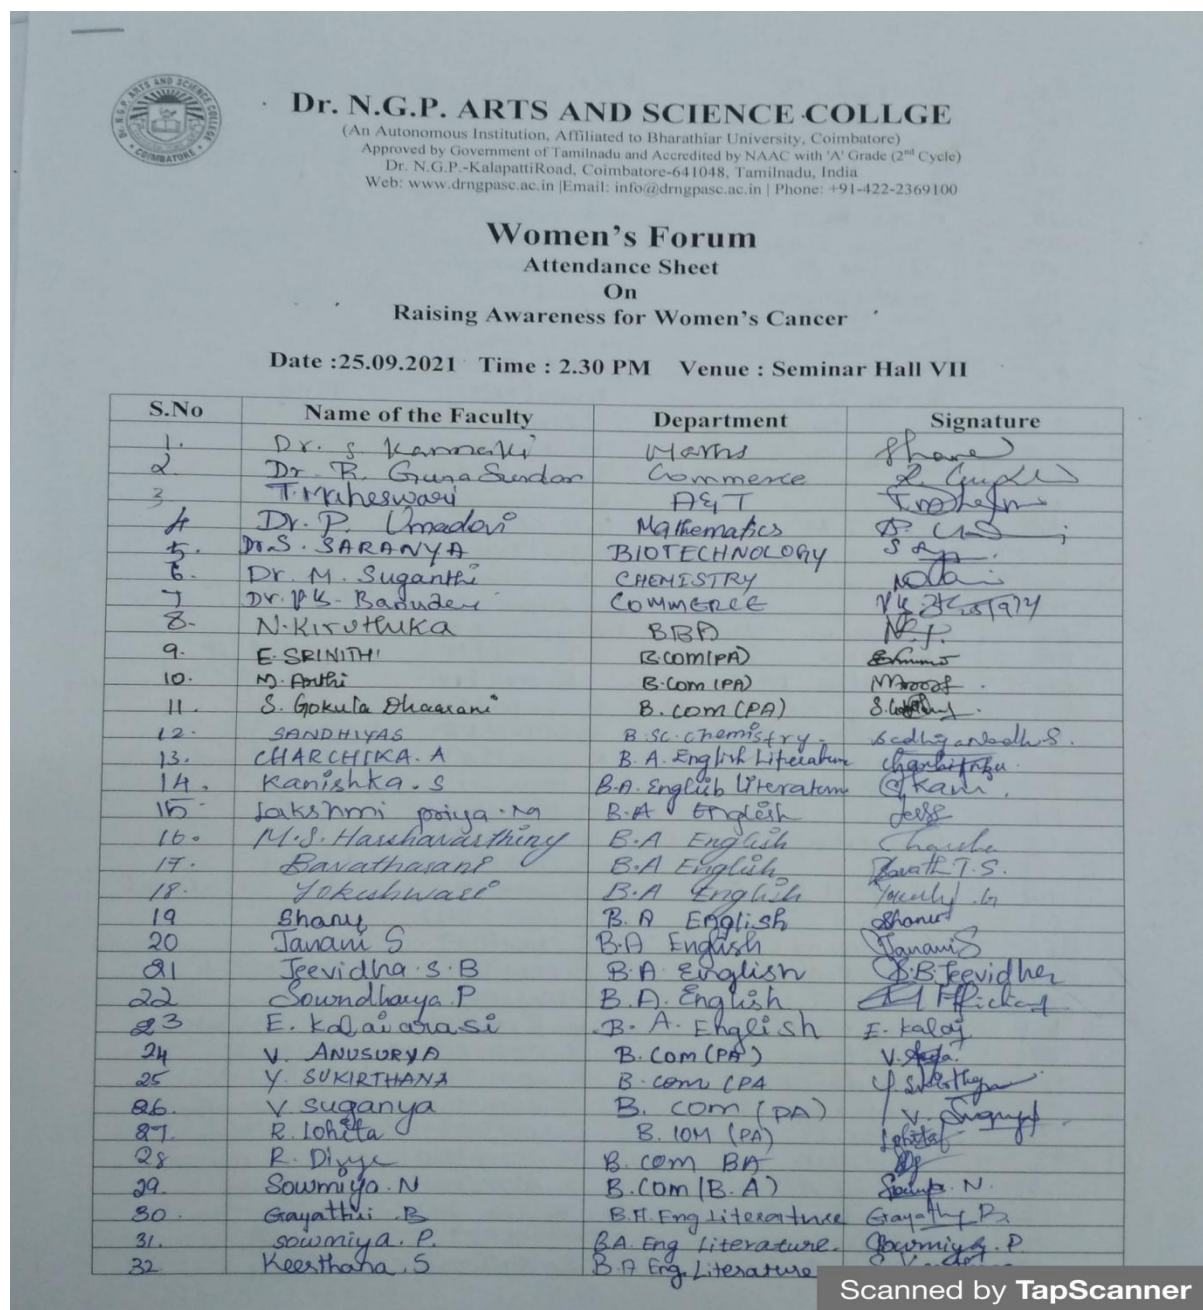 Dr. N.G.P. ARTS AND SCIENCE COLLEGE
COIMBATORE
Dr. N.G.P. ARTS AND SCIENCE COLLGE
(An Autonomous Institution, Affiliated to Bharathiar University, Coimbatore)
Approved by Government of Tamilnadu and Accredited by NAAC with 'A' Grade (2nd Cycle)
Dr. N.G.P.-KalapattiRoad, Coimbatore-641048, Tamilnadu, India
Web: www.drngpasc.ac.in |Email: info@drngpasc.ac.in | Phone: +91-422-2369100
Women's Forum
Attendance Sheet
On
Raising Awareness for Women's Cancer
Date :25.09.2021 Time : 2.30 PM Venue : Seminar Hall VII
S.No Name of the Faculty Department Signature
1. Dr. S Kannaki Maths
2 Dr R. GunaSundari Commerce
3 T. Maheswari A&T
4 Dr. P. Umadevi Mathematics
5. Dr.S. SARANYA BIOTECHNOLOGY
6. Dr. M. Suganthi CHEMISTRY
7 Dr. COMMERCE
8. N. Kiruthuka BBA
9. E. SRINITHI B.COM(PA)
10. M. Arthi B.Com (PA)
11. S. Gokula Dhaarani B.com (PA)
12. SANDHIYAS B.SC. chemistry.
13. CHARCHIKA. A B. A. English Literature
14. Kanishka. S B.A. English Literature
15 Lakshmi priya. M B.A English
16. M.S. Harshavarthiny B.A English
17. Bavatharani B.A English
18. Yokeshwari B.A English
19 Shanu B. A English
20 Janani S B.A English Janani S
21 Jeevidha. S. B B.A English S.B. Jeevidha
22 Soundharya. P B.A. English
23 E. Kalaiarasi B. A. English E. Kalai
24 V. ANUSURYA B. Com (PA)
25 Y. SUKIRTHANA B. com (PA
26. V. Suganya B. com (PA)
27. R. Lohita B. COM (PA)
28 R. Divya B. com BA
29. Sowmiya. N B.Com (B. A)
30. Gayathri .B B.A. Eng Literature Gayathri B.
31. sowmiya. P. BA. Eng Literature. Sowmiya. P
32 Keerthana. S B.A Eng. Literature
Scanned by TapScanner